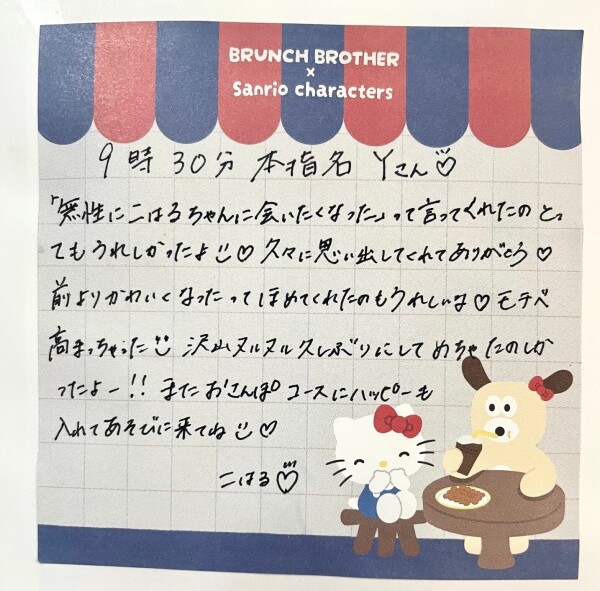 BRUNCH BROTHER
×
Sanrio characters
9時30分 本指名 Yさん♡
「無性にこはるちゃんに会いたくなった」って言ってくれたのとっ
てもうれしかったよ☺♡ 久々に思い出してくれてありがとう♡
前よりかわいくなったってほめてくれたのもうれしいな♡ モチベ
高まっちゃった☺ 沢山ヌルヌル久しぶりにしてめちゃたのしか
ったよー!! またおさんぽコースにハッピーも
入れてあそびに来てね☺♡
こはる♡